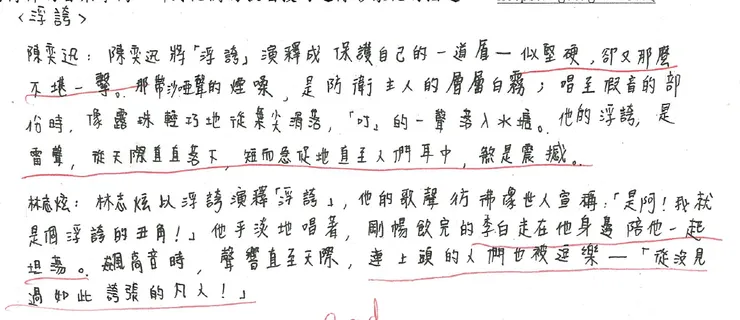 〈浮誇〉
陳奕迅：陳奕迅將「浮誇」演釋成 保護自己的一道盾－似堅硬，卻又那麼
不堪一擊。那帶沙啞聲的煙嗓，是防衛主人的層層白霧；唱至假音的部
份時，像露珠輕巧地從葉尖滑落，「叮」的一聲落入水塘。他的浮誇，是
雷聲，從天際直直落下，短而急促地直至人們耳中，煞是震撼。
林志炫：林志炫以浮誇演釋「浮誇」，他的歌聲彷彿像世人宣稱：「是阿！我就
是個浮誇的丑角！」他平淡地唱著，剛暢飲完的李白走在他身邊陪他一起
坦蕩。飆高音時，聲響直至天際，連上頭的人們也被逗樂－「從沒見
過如此誇張的凡人！」